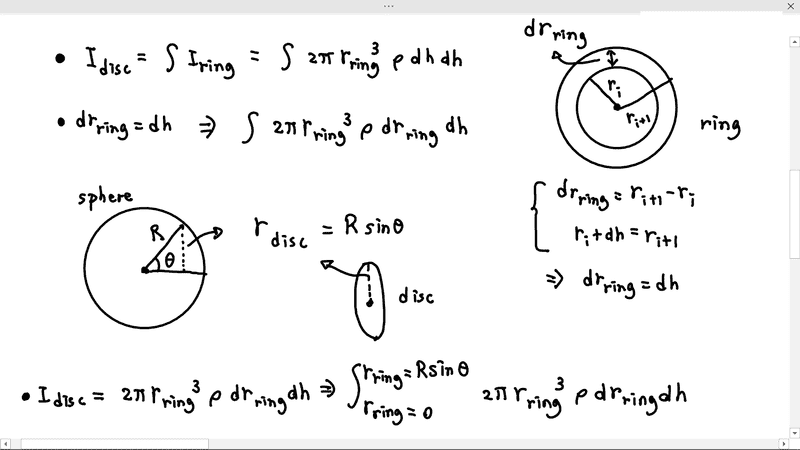 • I_disc = ∫ I_ring = ∫ 2π r_ring³ ρ dh dh
• dr_ring = dh ⇒ ∫ 2π r_ring³ ρ dr_ring dh
dr_ring
r_i
r_{i+1}
ring
sphere
R
θ
r_disc = R sinθ
disc
dr_ring = r_{i+1} - r_i
r_i + dh = r_{i+1}
⇒ dr_ring = dh
• I_disc = 2π r_ring³ ρ dr_ring dh ⇒ ∫_{r_ring = 0}^{r_ring = R sinθ} 2π r_ring³ ρ dr_ring dh